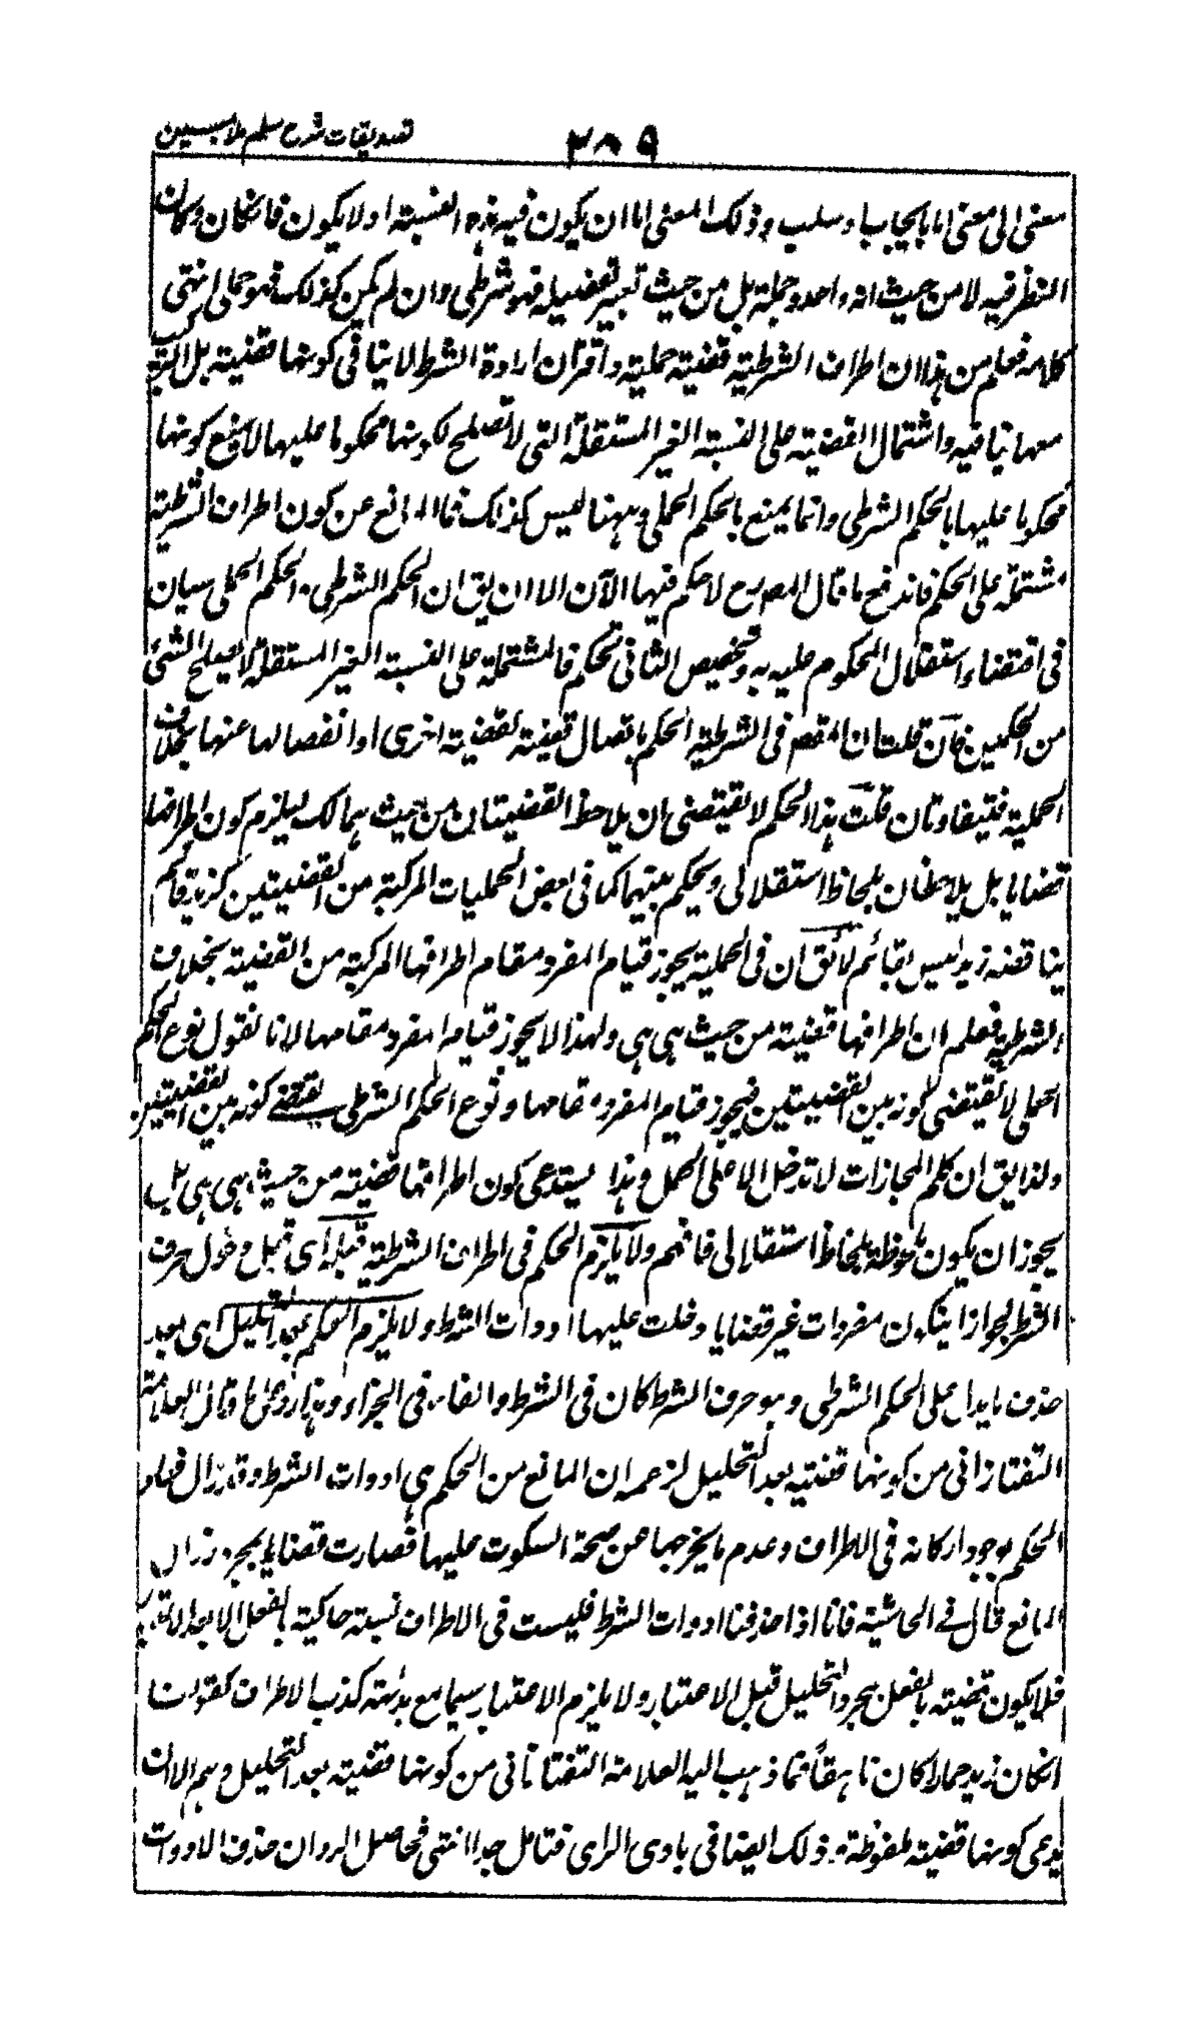 ٢٨٩ تصديقات شرح سلم ملا مبين
معنى الى معنى اما بايجاب او سلب وذلك المعنى اما ان يكون فيه هذه النسبة اولا يكون فان كان وكان
النظر فيه لا من حيث انه واحد وجملة بل من حيث تعبير تفصيله فهو شرطى وان لم يكن كذلك فهو حملى انتهى
كلامه فعلم من هذا ان اطراف الشرطية قضية حملية واقتران اداة الشرط لا ينافى كونها قضية بل التركيب
معها ينافيه واشتمال القضية على النسبة الغير المستقلة التى لا تصلح لكونها محكوما عليها لا يمنع كونها
محكوما عليها بالحكم الشرطى وانما يمنع بالحكم الحملى وههنا ليس كذلك فما المانع عن كون اطراف الشرطية
مشتملة على الحكم فاندفع ما قال المص رح لا حكم فيها الآن الا ان يق ان الحكم الشرطى والحكم الحملى سيان
فى اقتضاء استقلال المحكوم عليه به وتخصيص الثانى تحكم فالمشتملة على النسبة الغير المستقلة لا يصلح لشئ
من الحكمين فان قلت ان المقصم فى الشرطية الحكم باتصال قضية لقضية اخرى او انفصالها عنها بخلاف
الحملية فتفاوتان قلت هذا الحكم لا يقتضى ان يلاحظ القضيتان من حيث هما لك ليلزم كون اطرافها
قضايا بل يلاحظان بلحاظ استقلالى ويحكم بينهما كما فى بعض الحمليات المركبة من القضيتين كزيد قائم
يناقضه زيد ليس بقائم لا يق ان فى الحملية يجوز قيام المفرد مقام اطرافها المركبة من القضية بخلاف
الشرطية فعلم ان اطرافها قضية من حيث هى هى ولهذا لا يجوز قيام المفرد مقامها لانا نقول نوع الحكم
الحملى لا يقتضى لكونه بين القضيتين فيجوز قيام المفرد مقامها ونوع الحكم الشرطى يقتضى كونه بين القضيتين
ولذا يق ان كلم المجازات لا تدخل الا على الجمل وهذا لا يستدعى كون اطرافها قضية من حيث هى هى بل
يجوز ان يكون ملحوظة بلحاظ استقلالى فافهم ولا يلزم الحكم فى اطراف الشرطية قبله اى قبل دخول حرف
الشرط لجواز ان يكون مفردات غير قضايا دخلت عليها ادوات الشرط ولا يلزم الحكم بعد التحليل اى بعد
حذف ما يدل على الحكم الشرطى وهو حرف الشرط كان فى الشرط والفاء فى الجزاء وهذا رد على ما قال العلامة
التفتازانى من كونها قضية بعد التحليل لزعمه ان المانع من الحكم هى ادوات الشرط وقد زال فعاد
الحكم بوجود اركانه فى الاطراف وعدم ما يخرجها عن صحة السكوت عليها فصارت قضايا بمجرد زوال
المانع قال فى الحاشية فانا اذا حذفنا ادوات الشرط فليست فى الاطراف نسبة حاكية بالفعل الا بعد الاعتبار
فلا يكون قضية بالفعل بمجرد التحليل قبل الاعتبار ولا يلزم الاعتبار سيما مع بداهة كذب الاطراف كقولنا
ان كان زيد حمارا كان ناهقا فما ذهب اليه العلامة التفتازانى من كونها قضية بعد التحليل وهم الا ان
يدعى كونها قضية ملفوظة وذلك ايضا فى بادى الراى فتامل جدا انتهى فحاصل الرد ان حذف الادوات